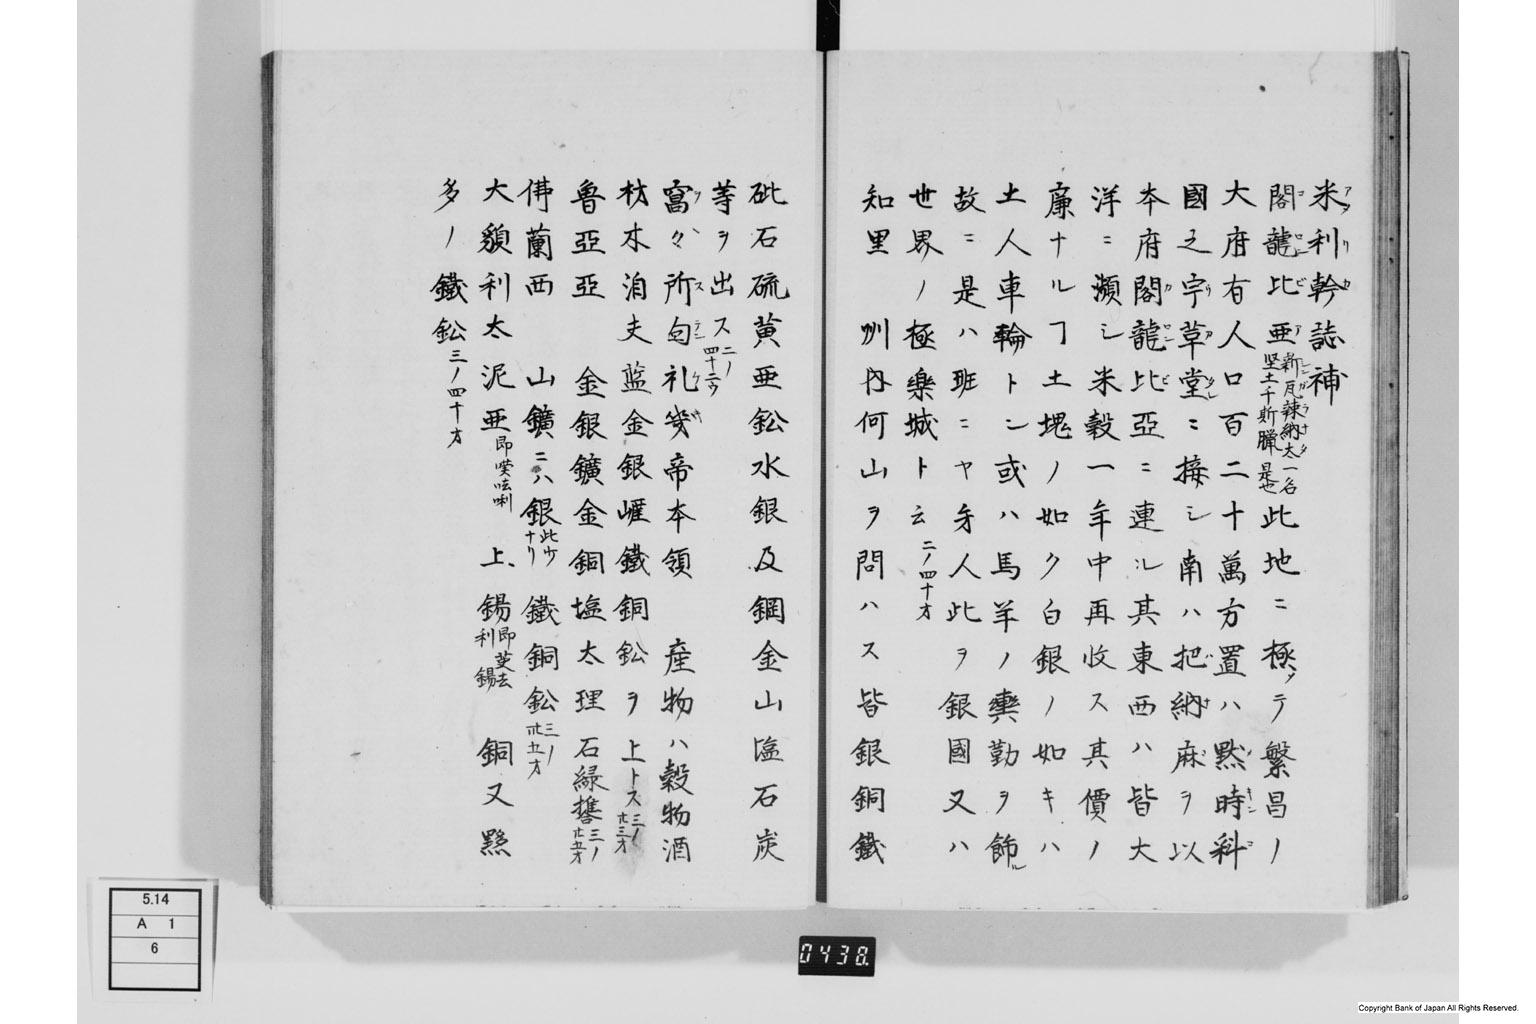 米利幹誌補
閣龍比亜新瓦辣納太一名堅土千斯臘是也此地ニ極メテ繁昌ノ
大府有人口百二十萬方置ハ黙時科
國之宇草堂ニ接シ南ハ把納麻ヲ以
本府閣龍比亞ニ連ル其東西ハ皆大
洋ニ瀕シ米穀一年中再收ス其價ノ
廉ナルヿ土塊ノ如ク白銀ノ如キハ
土人車輪トシ或ハ馬羊ノ轡勒ヲ飾ル
故ニ是ハ班ニヤ牙人此ヲ銀國又ハ
世界ノ極樂城ト云二ノ四十才
知里 州内何山ヲ問ハス皆銀銅鐵
砒石硫黄亜鉛水銀及鋼金山塩石炭
等ヲ出ス二ノ四十二ウ
窩々所匂礼幾帝本領 産物ハ穀物酒
材木泊夫藍金銀崕鐵銅鉛ヲ上トス三ノ廿三才
魯亞亞 金銀鑛金銅塩太理石緑礬三ノ廿五才
佛蘭西 山鑛ニハ銀此少ナリ鐵銅鉛三ノ卅五才
大貌利太泥亜即暎咭唎 上錫即莫去利錫 銅又黙
多ノ鐵鉛三ノ四十才
5.14
A 1
6
0438
Copyright Bank of Japan All Rights Reserved.